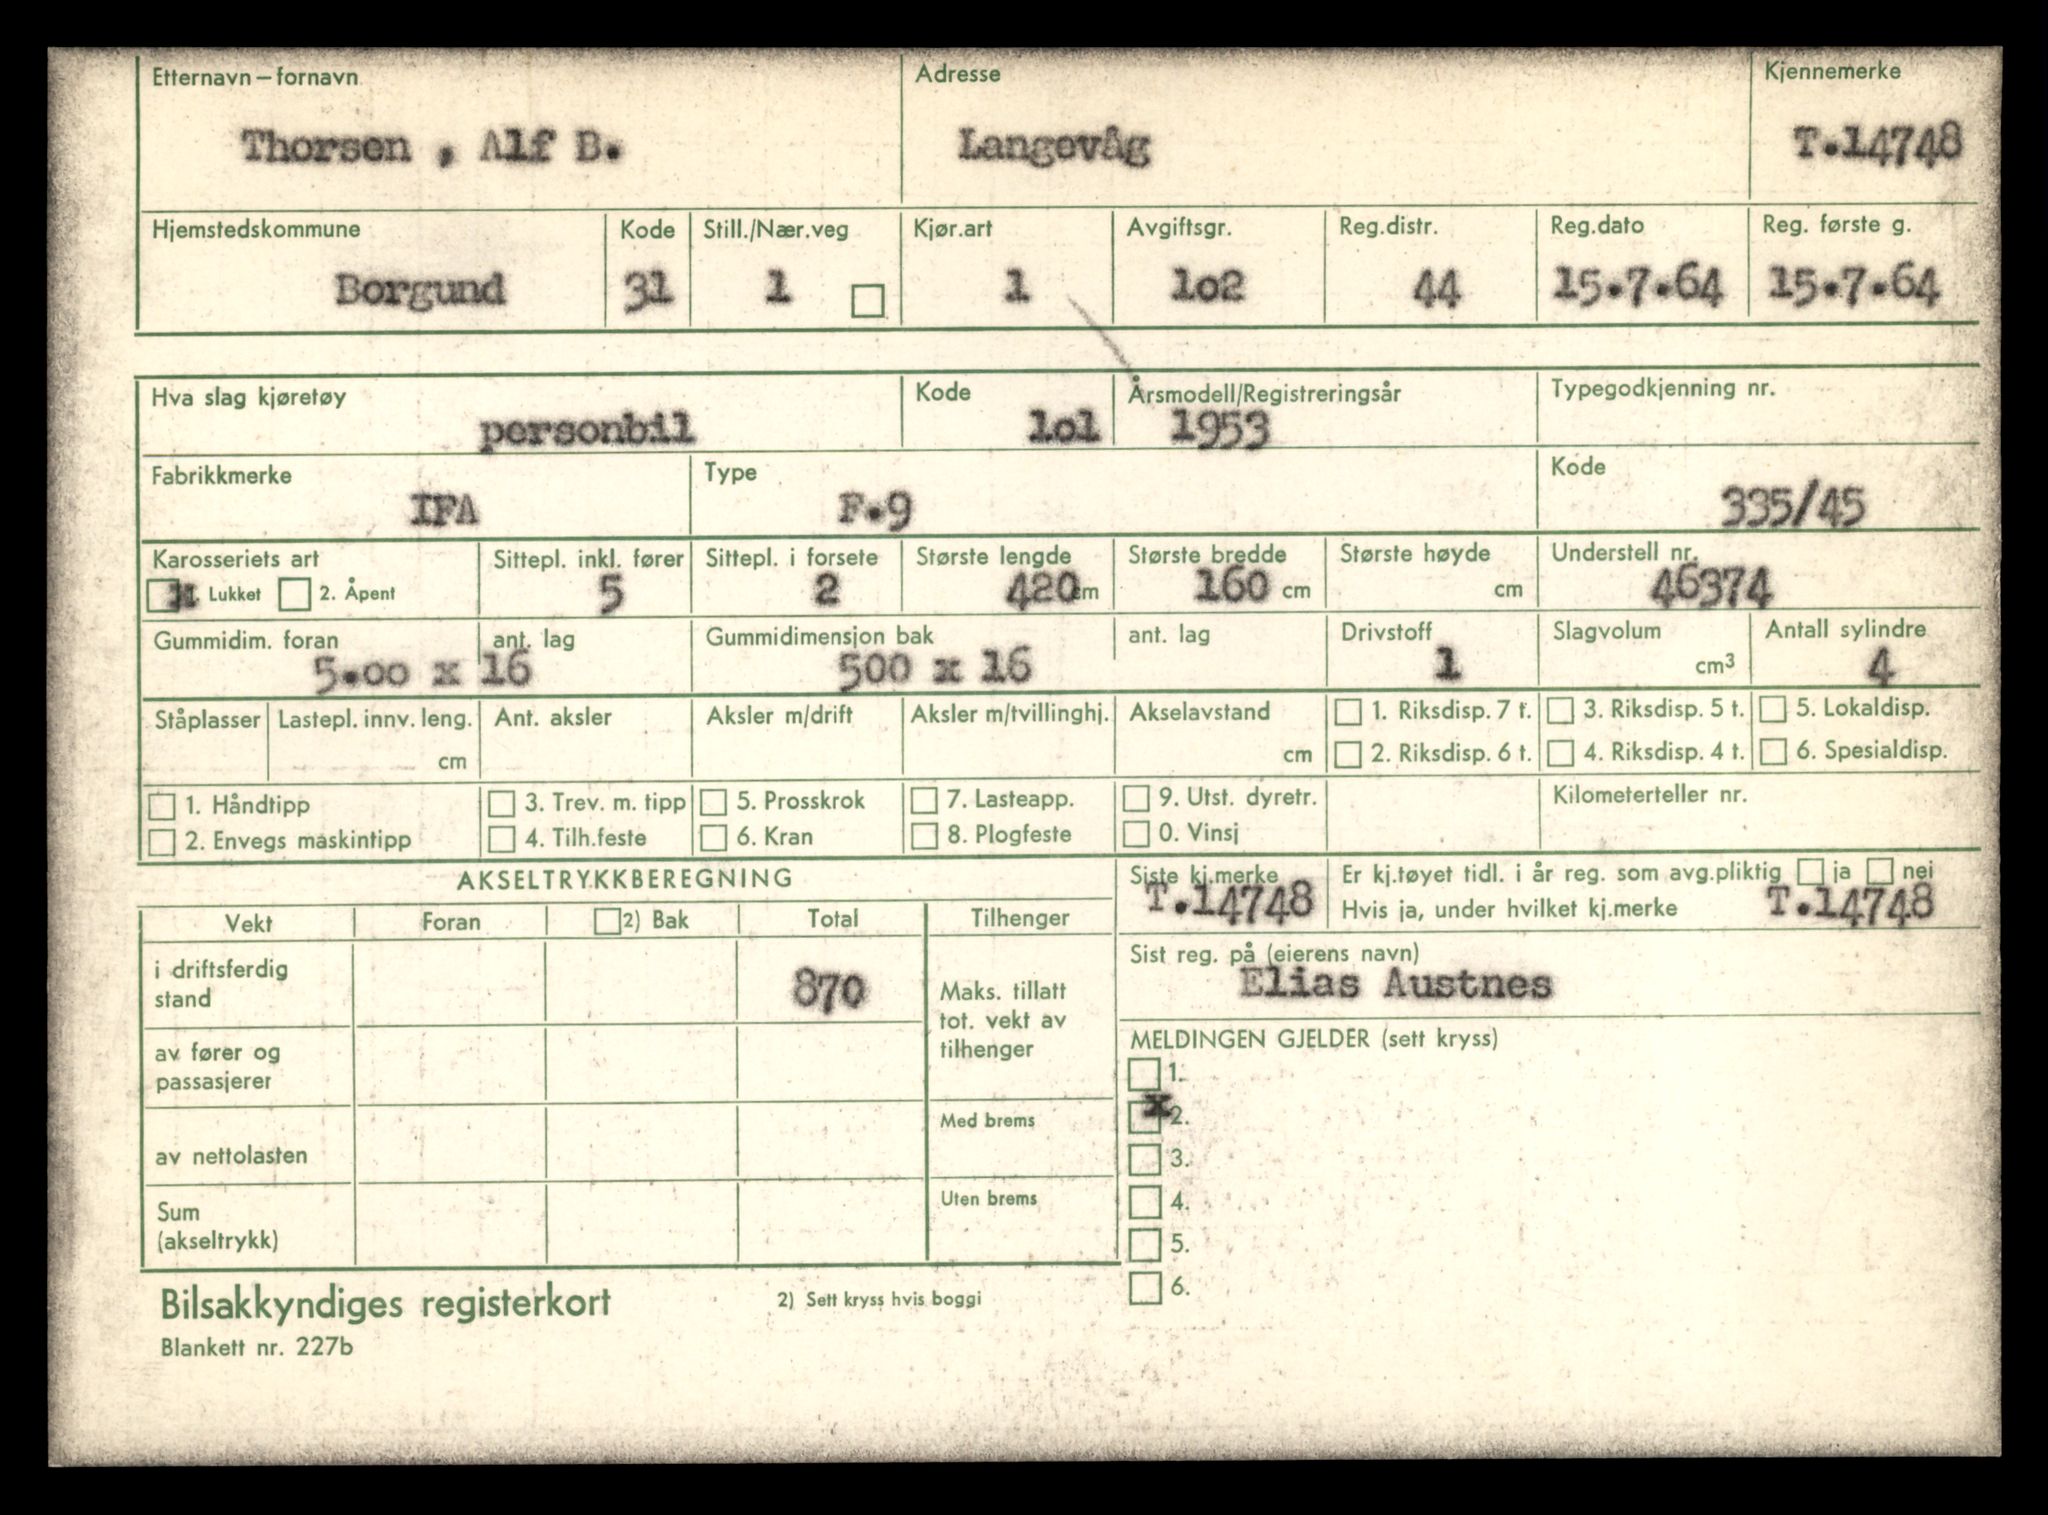 Etternavn – fornavn Adresse Kjennemerke
Thorsen , Alf B. Langevåg T.14748
Hjemstedskommune Kode Still./Nær.veg Kjør.art Avgiftsgr. Reg.distr. Reg.dato Reg. første g.
Borgund 31 1 1 1o2 44 15.7.64 15.7.64
Hva slag kjøretøy Kode Årsmodell/Registreringsår Typegodkjenning nr.
personbil 1o1 1953
Fabrikkmerke Type Kode
IFA F.9 335/45
Karosseriets art Sittepl. inkl. fører Sittepl. i forsete Største lengde Største bredde Største høyde Understell nr.
x Lukket 2. Åpent 5 2 420 cm 160 cm cm 46374
Gummidim. foran ant. lag Gummidimensjon bak ant. lag Drivstoff Slagvolum Antall sylindre
5.oo x 16 500 x 16 1 cm3 4
Ståplasser Lastepl. innv. leng. Ant. aksler Aksler m/drift Aksler m/tvillinghj. Akselavstand 1. Riksdisp. 7 t. 3. Riksdisp. 5 t. 5. Lokaldisp.
cm cm 2. Riksdisp. 6 t. 4. Riksdisp. 4 t. 6. Spesialdisp.
1. Håndtipp 3. Trev. m. tipp 5. Prosskrok 7. Lasteapp. 9. Utst. dyretr. Kilometerteller nr.
2. Envegs maskintipp 4. Tilh.feste 6. Kran 8. Plogfeste 0. Vinsj
AKSELTRYKKBEREGNING Siste kj.merke Er kj.tøyet tidl. i år reg. som avg.pliktig ja nei
T.14748 Hvis ja, under hvilket kj.merke T.14748
Vekt Foran 2) Bak Total Tilhenger
Sist reg. på (eierens navn)
Elias Austnes
i driftsferdig
stand 870
Maks. tillatt
tot. vekt av
tilhenger
av fører og
passasjerer
Med brems
av nettolasten
Uten brems
Sum
(akseltrykk)
MELDINGEN GJELDER (sett kryss)
1.
x 2.
3.
4.
5.
6.
Bilsakkyndiges registerkort 2) Sett kryss hvis boggi
Blankett nr. 227b